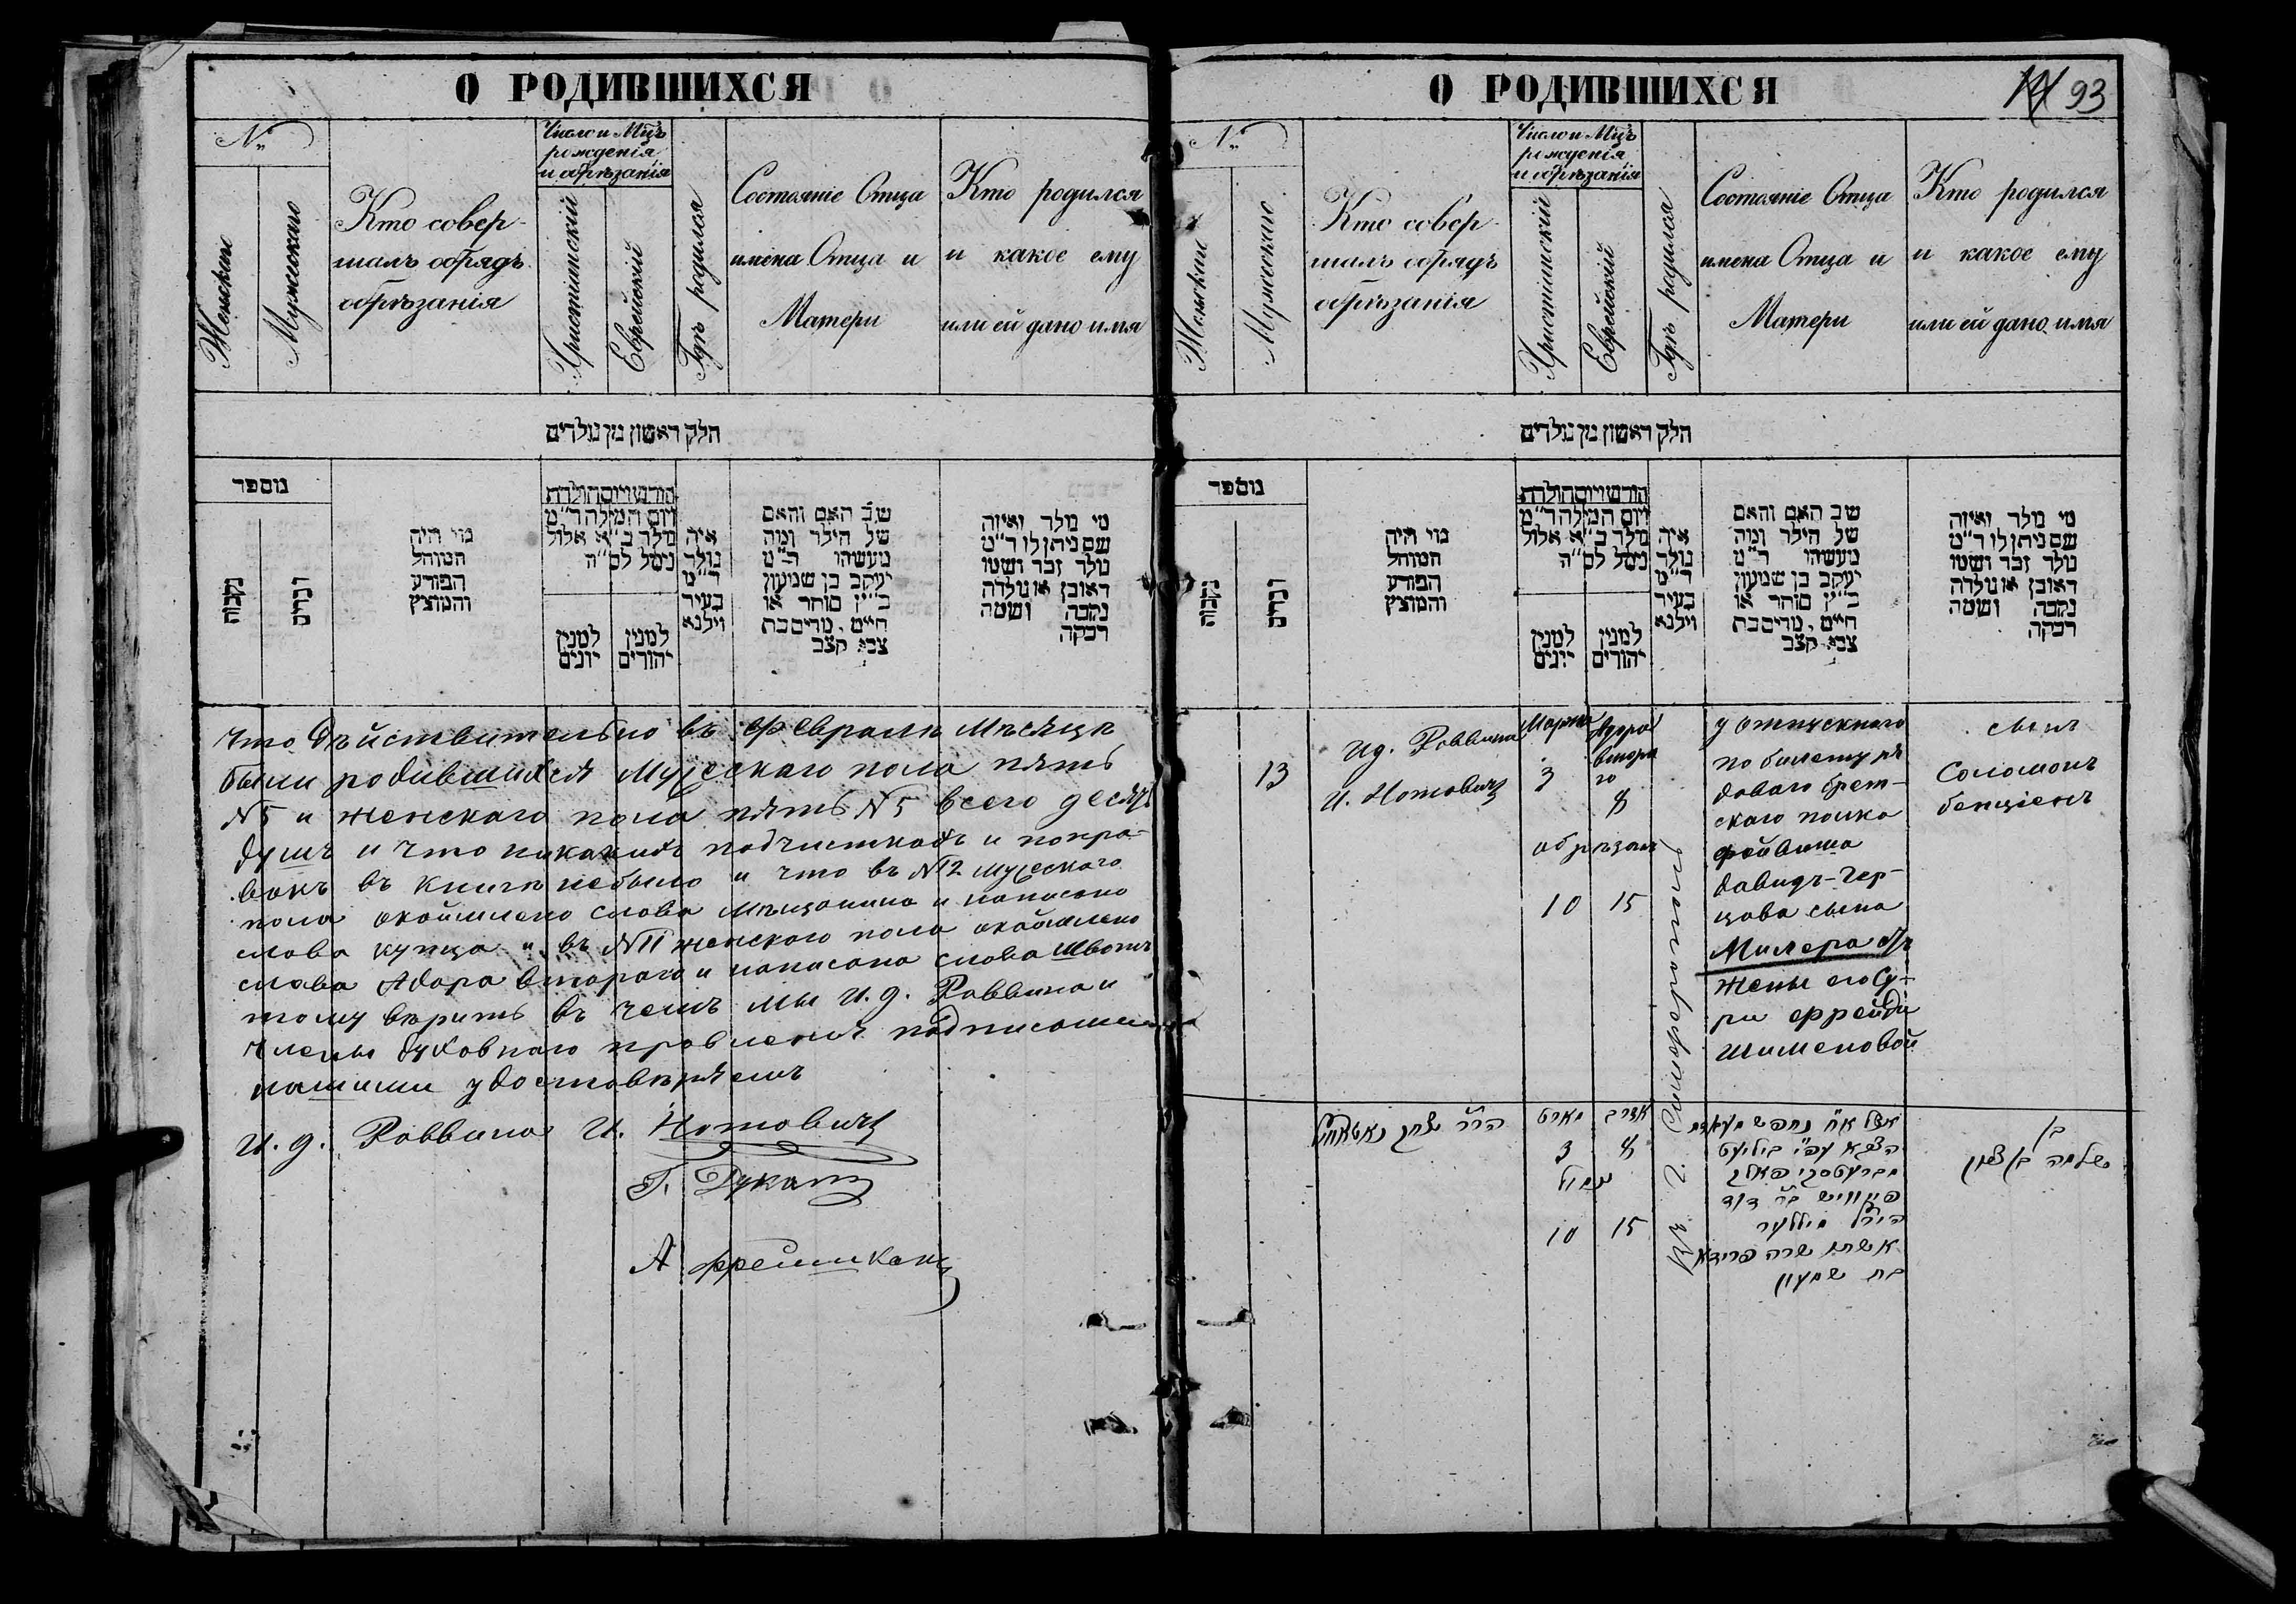 О РОДИВШИХСЯ
№
Женскаго
Мужескаго
Кто совер-
шалъ обрядъ
обрѣзанія
Число и Мцъ
рожденія
и обрѣзанія
Христіанскій
Еврейскій
Гдѣ родился
Состояніе Отца
имена Отца и
Матери
Кто родился
и какое ему
или ей дано имя
חלק ראשון מן נולדים
מספר
נקבות
זכרים
מי היה
המוהל
הפורע
והמוצץ
חודש ויום הולדת
ויום המילה ר"מ
נולד ב"א אלול
נימל לס"ה
למנין
יונים
למנין
יהודים
איה
נולד
ר"מ
בעיר
ווילנא
שב האם והאם
של הילד ומה
מעשהו ר"מ
יעקב בן שמעון
כ"ץ סוחר או
חיים, מרים בת
צבא קצב
מי נולד ואיזה
שם ניתן לו ר"מ
נולד זכר ושמו
ראובן או נולדה
נקבה ושמה
רבקה
что дѣйствительно въ февралѣ мѣсяцѣ
были родившихся мужескаго пола пять
№5 и женскаго пола пять №5 всего десять
душъ и что никакихъ подчистокъ и попра-
вокъ въ книгѣ небыло и что въ №12 мужескаго
пола окоймлено слова мѣщанина и написано
слова купца и въ №11 женскаго пола окоймлено
слова Адара втораго и написано слова Швотъ
тому вѣрить въ чемъ мы И. д. Раввина и
члены духовнаго правленія подписами
нашими удостовѣряемъ
И. д. Раввина И. Нотовичъ
Г. Дуканъ
А Фрешкопъ
О РОДИВШИХСЯ
93
№
Женскаго
Мужескаго
Кто совер-
шалъ обрядъ
обрѣзанія
Число и Мцъ
рожденія
и обрѣзанія
Христіанскій
Еврейскій
Гдѣ родился
Состояніе Отца
имена Отца и
Матери
Кто родился
и какое ему
или ей дано имя
חלק ראשון מן נולדים
מספר
נקבות
זכרים
מי היה
המוהל
הפורע
והמוצץ
חודש ויום הולדת
ויום המילה ר"מ
נולד ב"א אלול
נימל לס"ה
למנין
יונים
למנין
יהודים
איה
נולד
ר"מ
בעיר
ווילנא
שב האם והאם
של הילד ומה
מעשהו ר"מ
יעקב בן שמעון
כ"ץ סוחר או
חיים, מרים בת
צבא קצב
מי נולד ואיזה
שם ניתן לו ר"מ
נולד זכר ושמו
ראובן או נולדה
נקבה ושמה
רבקה
13
И д. Раввина
И. Нотовичъ
Марта
3
обрѣзанъ
10
Адара
втора
го
8
15
Въ г. Симферополь
у отпускного
по билету ря
доваго Брест-
скаго полка
Фойвиша
Давидъ-Гер-
цова сына
Милера отъ
жены его Су-
ри Фрейди
Шименовой
сынъ
Соломонъ
бенціенъ
הרר יצחק נאטאוויץ
מארט
3
נימול
10
אדר ב
8
15
אצל איש נחפש מעבדת
הצבא עפ"י ביליעט
מברעסטסקי פאלק
פייוויש בר דוד
הירץ מיללער
אשתו שרה פריידא
בת שמעון
בן
שלמה בן ציון